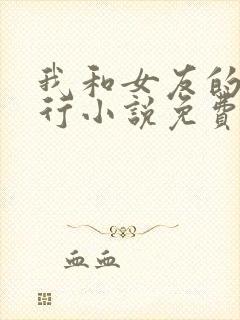 我和女友的
行小說免費
血血